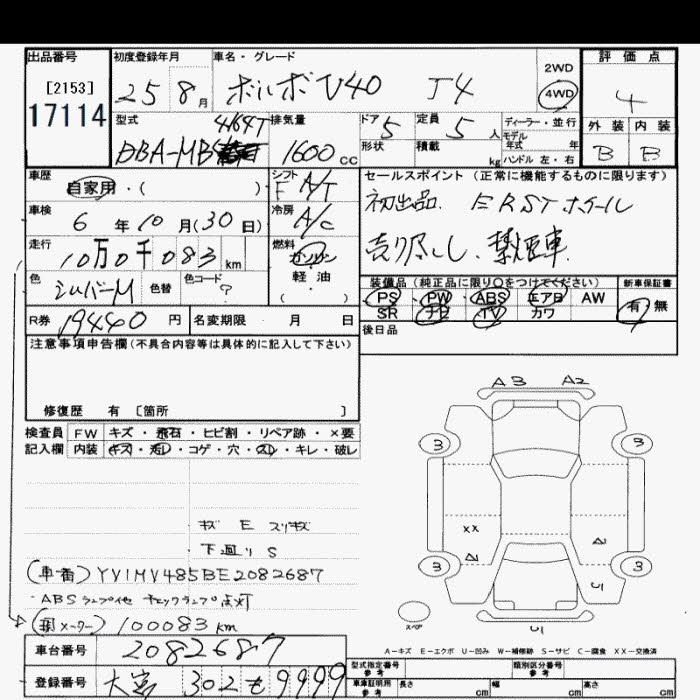 出品番号 初度登録年月 車名・グレード 2WD 評価点
[2153] 25 8月 ボルボ V40 T4 4WD 4
17114
型式 4164T 排気量 ドア 定員 ディーラー・並行 外装 内装
DBA-MB 1600cc 5 5人 モデル年式 年 B B
形状 積載 kg ハンドル 左・右
車歴 シフト セールスポイント (正常に機能するものに限ります)
自家用・( ) F A/T 初出品
車検 冷房 売り尽くし、禁煙車
6年10月(30日) A/C
走行 燃料
10万0千083km ガソリン 装備品 (純正品に限り○をつけてください) 新車保証書
色 色替 色コード 軽・油 PS PW ABS エアB AW 有 無
シルバーM ? ( ) SR ナビ TV カワ
R券 19440円 名変期限 月 日 後日品
注意事項申告欄(不具合内容等は具体的に記入して下さい)
修復歴 有 [箇所 ]
検査員 FW キズ・飛石・ヒビ割・リペア跡・×要
記入欄 内装 キズ・汚レ・コゲ・穴・スレ・キレ・破レ
A3 A2
3 3
XX A2 A2
3 3
U1
スペア U1
キズ E スリキズ
下廻り S
(車番) YV1MV485BE2082687
・ABSランプ他 チェックランプ点灯
メーター) 100083km
A-キズ E-エクボ U-凹み W-補修跡 S-サビ C-腐食 XX-交換済
車台番号 2082687
登録番号 大宮 302 も 9999
型式指定番号 参考 類別区分番号 参考
車庫証明用 参考 長さ cm 幅 cm 高さ cm